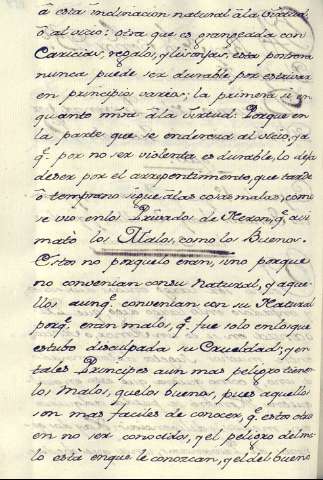 â esta indinacion natural âla virtud
ô al vicio: otra que es grangeada con
Caricias, regalo, y lisonjas: esta postrera
nunca puede ser durable por estrivar
en principio vario; la primera si en
quanto mira âla virtud. Porque en
la parte que se endereza al vicio, ya
q.e por no ser violenta es durable, lo deja
de ser por el arrepentimiento, que tarde
ô temprano sigue âlas cosas malas, como
se vio en los Privados de Neron, q.e asi
matò los Malos, como los Buenos.
Estos no porque lo eran, sino porque
no convenian con su Natural, y aque-
llos aunq.e convenian con su Natural
porq.e eran malos, q.e fue solo en lo que
estubo disculpada su Crueldad; y en
tales Principes aun mas peligro tienen
los Malos, que los buenos, pues aquellos
son mas faciles de conocer, q.e estos otros
en no ser conocidos, y el peligro del ma-
lo està en que le conozcan, y el del bueno